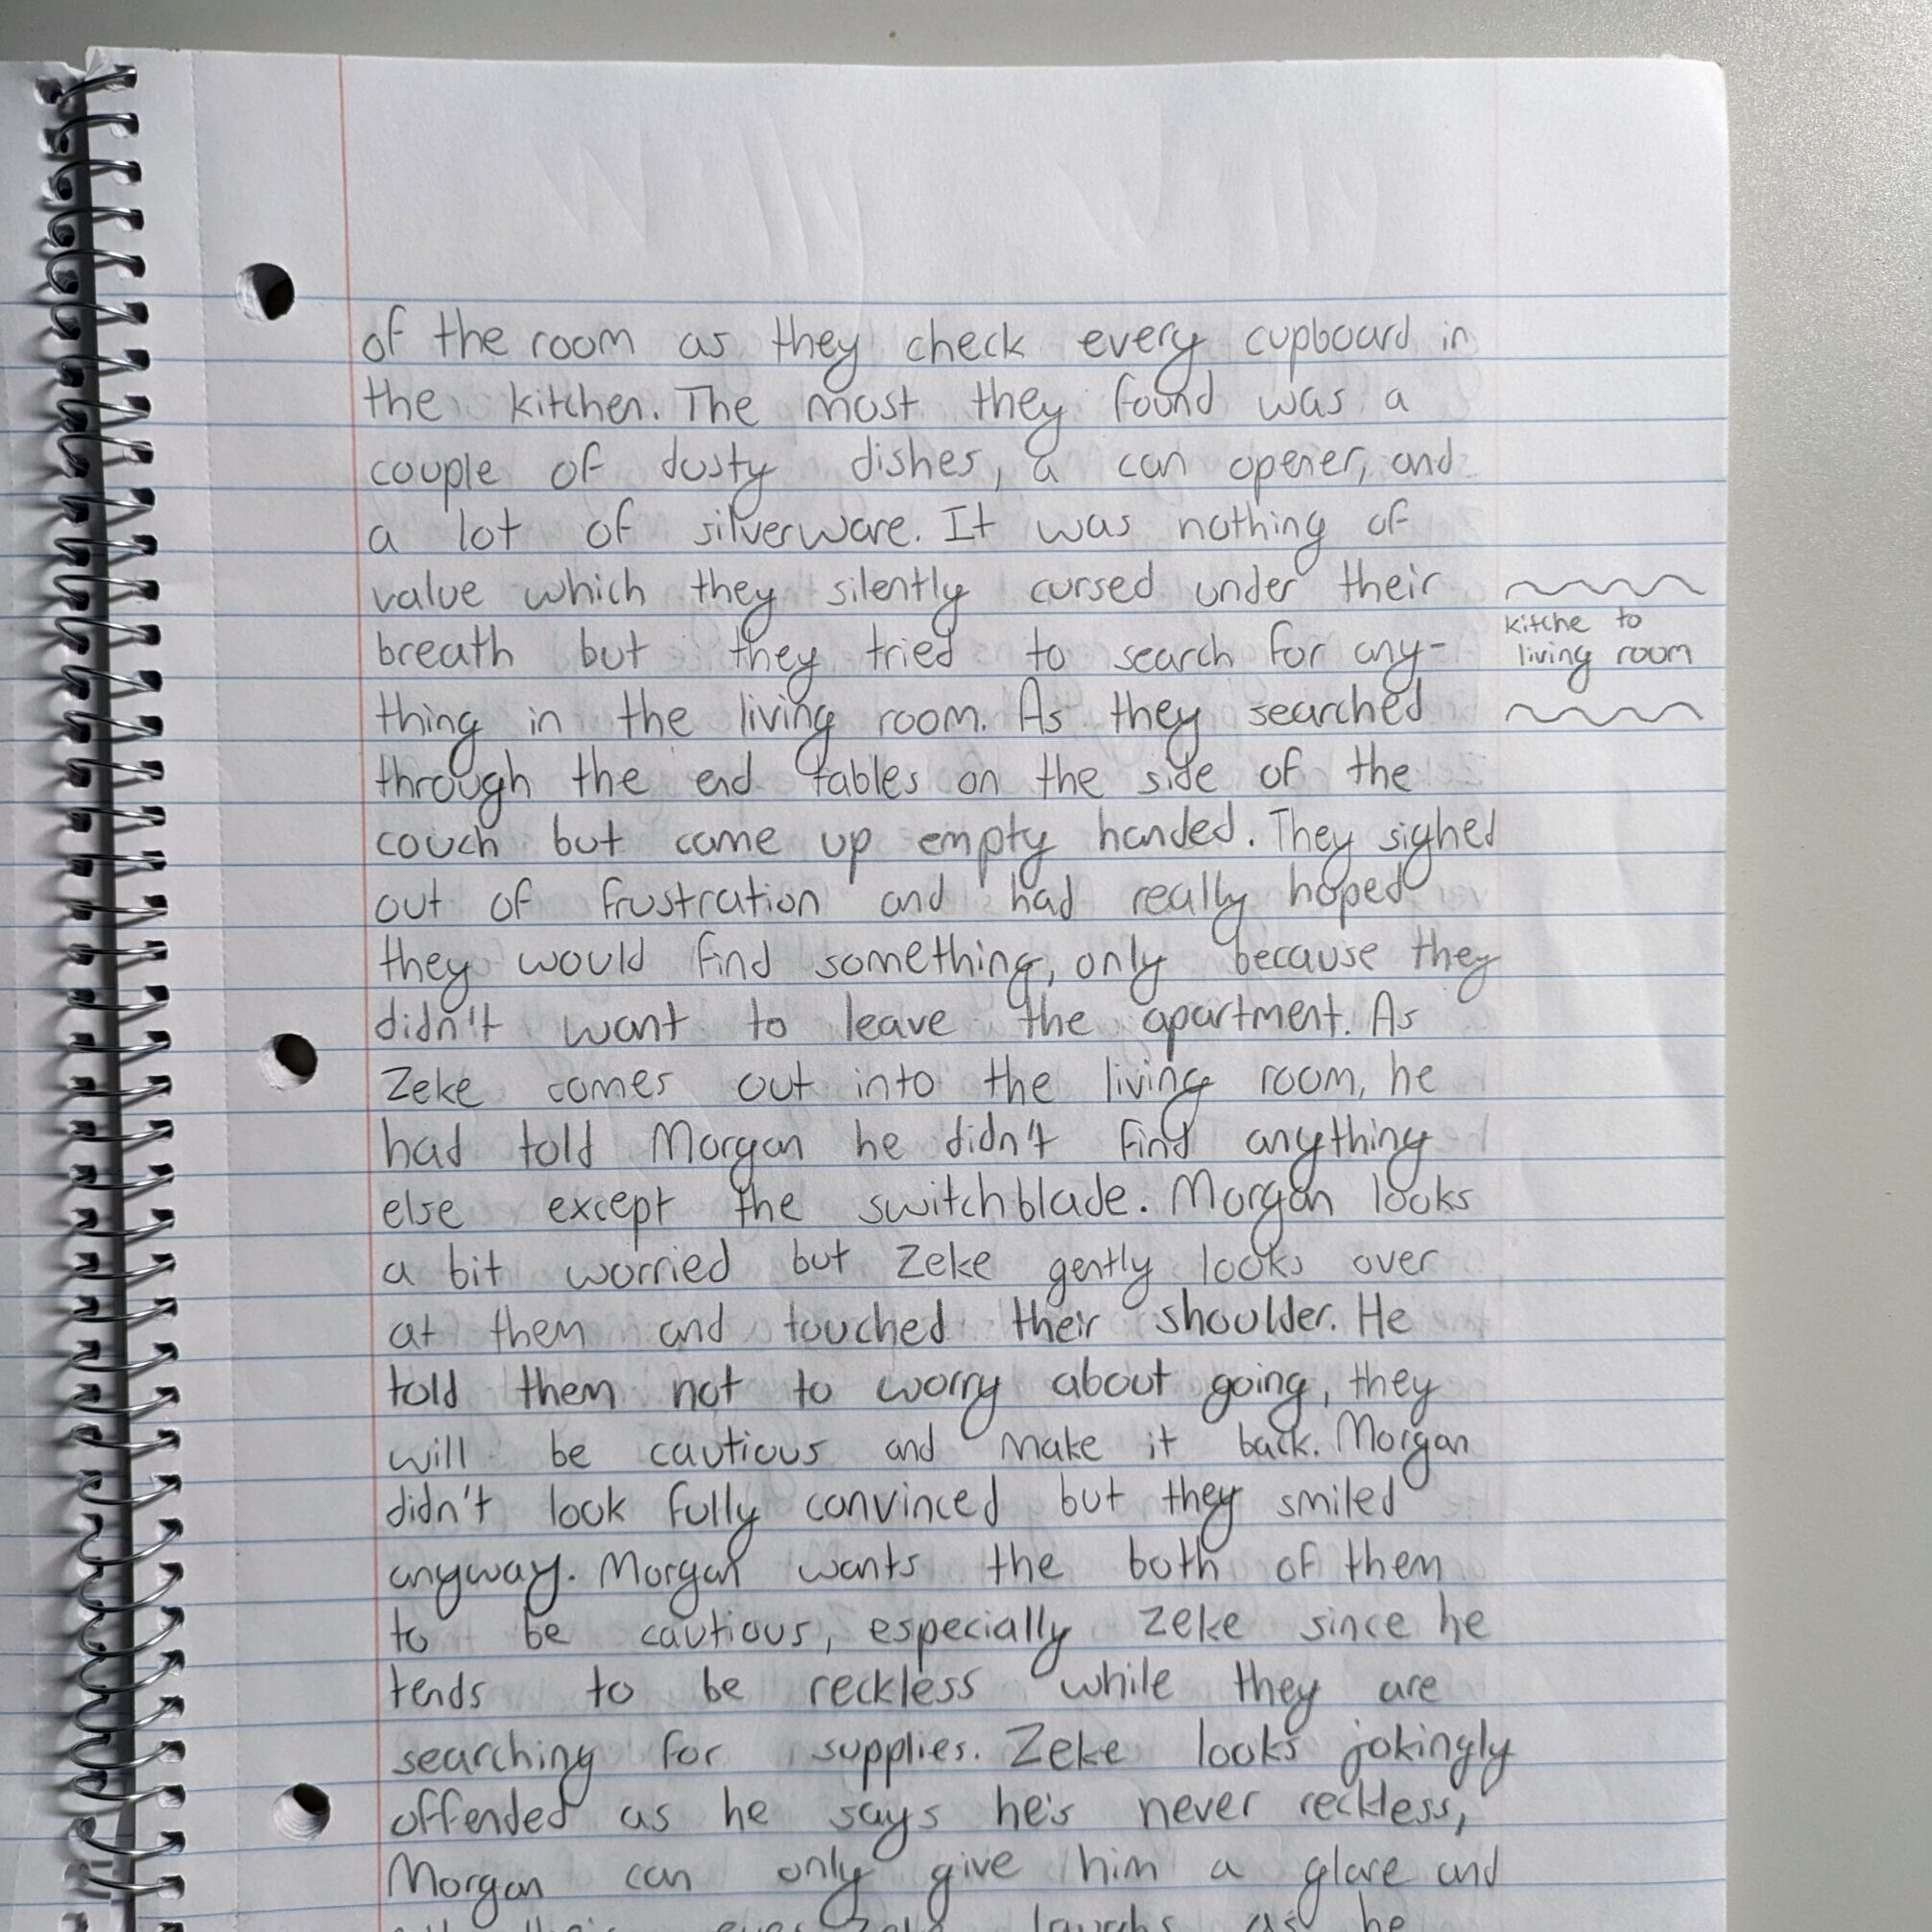 of the room as they check every cupboard in
the kitchen. The most they found was a
couple of dusty dishes, a can opener, and
a lot of silverware. It was nothing of
value which they silently cursed under their
breath but they tried to search for any-
kitche to
living room
thing in the living room. As they searched
through the end tables on the side of the
couch but came up empty handed. They sighed
out of frustration and had really hoped
they would find something, only because they
didn't want to leave the apartment. As
Zeke comes out into the living room, he
had told Morgan he didn't find anything
else except the switchblade. Morgan looks
a bit worried but Zeke gently looks over
at them and touched their shoulder. He
told them not to worry about going, they
will be cautious and make it back. Morgan
didn't look fully convinced but they smiled
anyway. Morgan wants the both of them
to be cautious, especially Zeke since he
tends to be reckless while they are
searching for supplies. Zeke looks jokingly
offended as he says he's never reckless,
Morgan can only give him a glare and
their eyes Zeke laughs as he